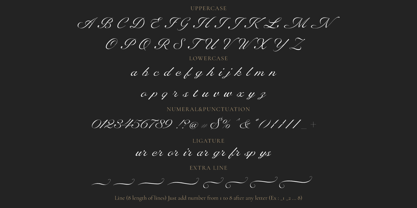 UPPERCASE
A B C D E F G H I J K L M N
O P Q R S T U V W X Y Z
LOWERCASE
a b c d e f g h i j k l m n
o p q r s t u v w x y z
NUMERAL&PUNCTUATION
0123456789
LIGATURE
ur er or ir ar gr fr sp ys
EXTRA LINE
Line (8 length of lines) Just add number from 1 to 8 after any letter (Ex :_1_2_... 8)